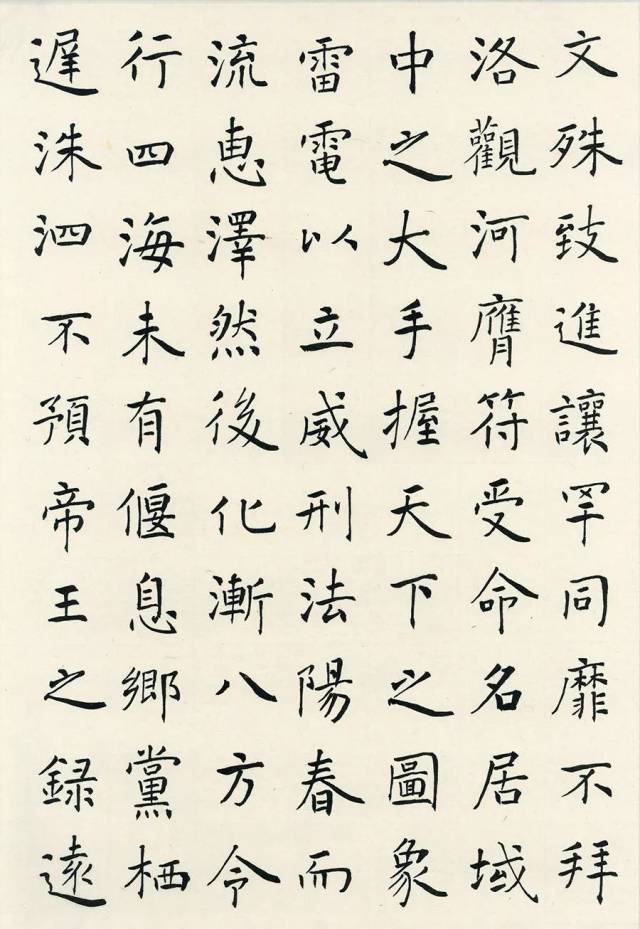 文殊致進讓罕同靡不拜
洛觀河膺符受命名居域
中之大手握天下之圖象
雷電以立威刑法陽春而
流恵澤然後化漸八方令
行四海未有偃息鄉黨栖
遲洙泗不預帝王之録遠